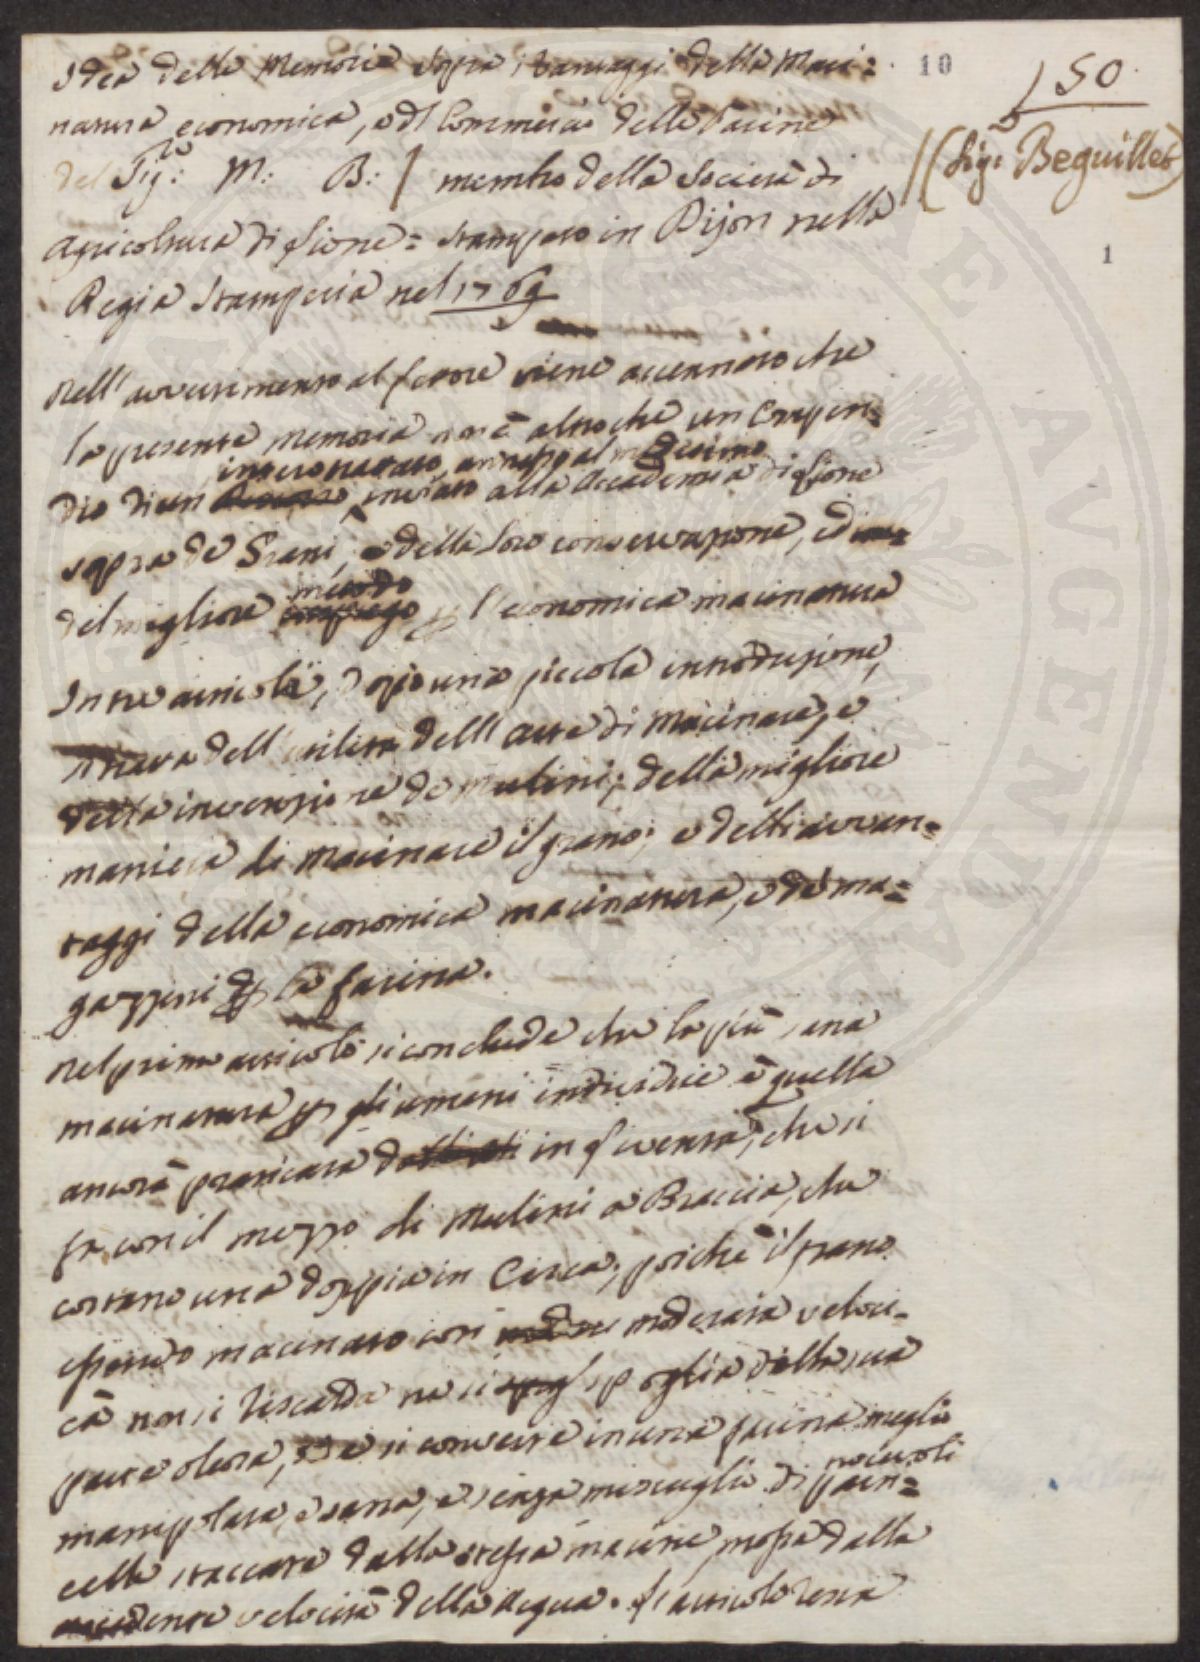 10
150
Idea della Memoria sopra i vantaggi della Maci=
natura economica, e dl Commercio delle Farine
del Sig:re M: B: / membro della Società di
//(Sig:e Beguillet)
Agricoltura di Lione = stampato in Dijon nella
1
Regia Stamperia nel 1769
Nell' avvertimento al Lettore viene accennato che
la presente Memoria non è altro che un Compen=
intero trattato, annesso al medesimo
dio di un inviato alla Accademia di Lione
sopra de Grani, e della loro conservazione, ed
metodo
del migliore impiego per l'economica macinatura
In tre articoli, dopo una piccola introduzione,
si tratta dell' utilità dell' arte di Macinare, e
della invenzione de mulini; della migliore
maniera di Macinare il grano; e delli avvan=
taggi della economica macinatura, e de ma=
gazzeni per la farina.
Nel primo articolo si conclude che la più sana
macinatura per gli umani individui è quella
ancora praticata in Livenza, che si
fa con il mezzo di Mulini a Braccia, che
costano una doppia in Circa, poichè il grano
essendo macinato con moderata veloci=
tà non si riscalda ne si spoglia della sua
parte oleosa, e si converte in una farina meglio
nocevoli
manipolata, e sana, e senza miscuglio di parti=
celle staccate dalla stessa macine mossa dalla
velocità della Acqua. L'articolo terza